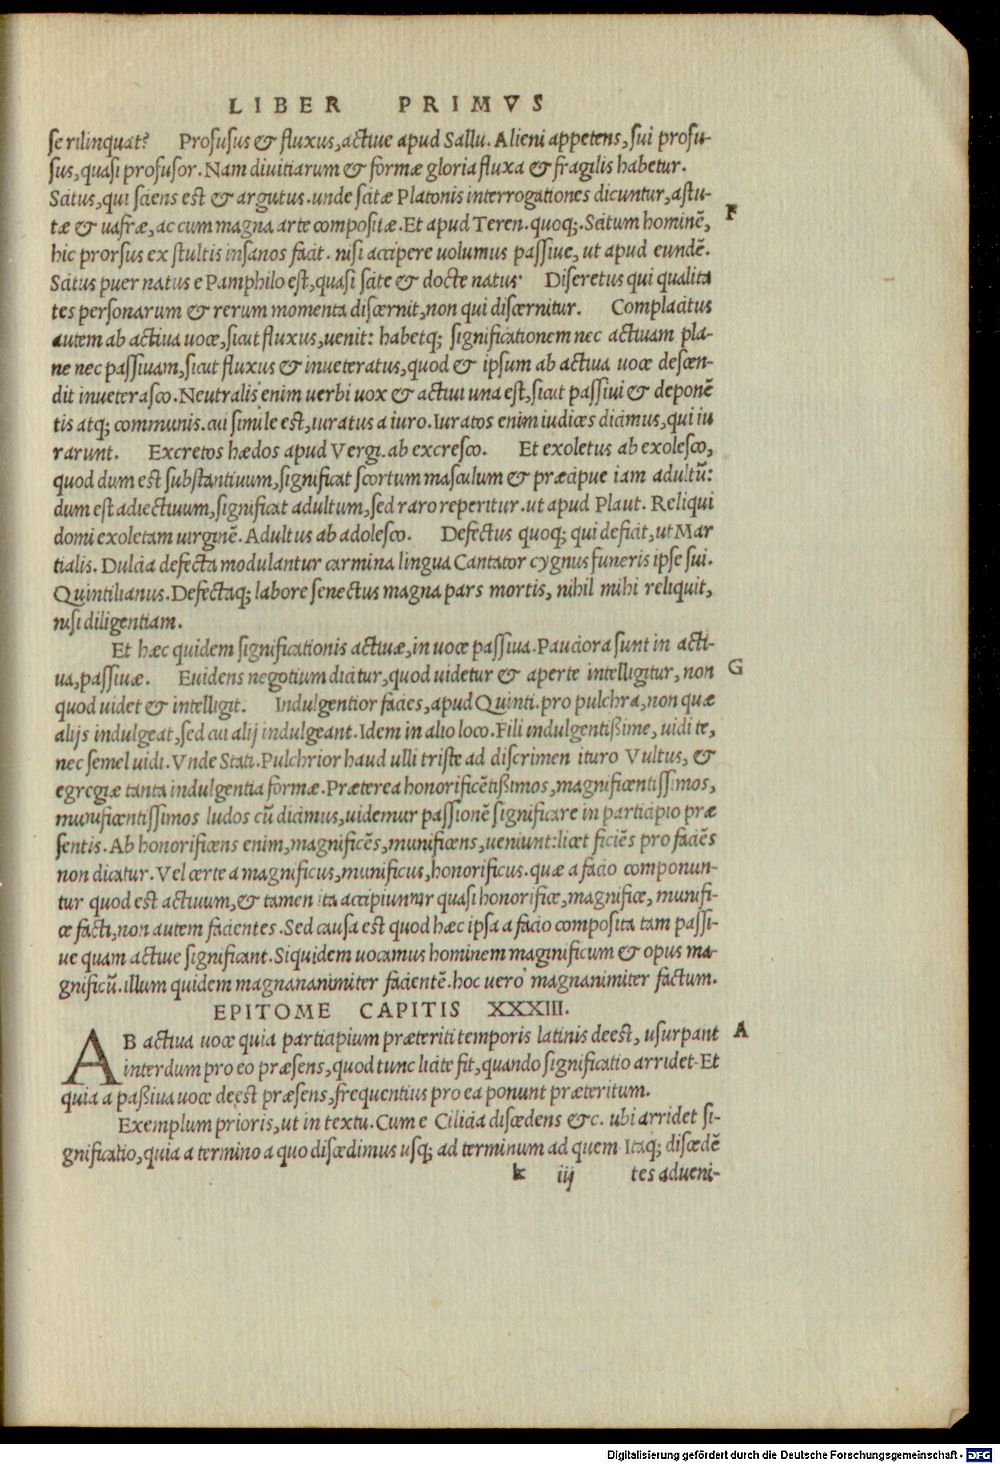 LIBER PRIMVS
se rilinquat? Profusus & fluxus, actiue apud Sallu. Alieni appetens, sui profu-
sus, quasi profusor. Nam diuitiarum & formæ gloria fluxa & fragilis habetur.
Scitus, qui sciens est & argutus. unde scitæ Platonis interrogationes dicuntur, astu-
tæ & uafræ, ac cum magna arte compositæ. Et apud Teren. quoq; Scitum hominē,
F
hic prorsus ex stultis insanos facit. nisi accipere uolumus passiue, ut apud eundē.
Scitus puer natus e Pamphilo est, quasi scite & docte natus· Discretus qui qualita
tes personarum & rerum momenta discernit, non qui discernitur. Complacitus
autem ab actiua uoce, sicut fluxus, uenit: habetq; significationem nec actiuam pla-
ne nec passiuam, sicut fluxus & inueteratus, quod & ipsum ab actiua uoce descen-
dit inueterasco. Neutralis enim uerbi uox & actiui una est, sicut passiui & deponē
tis atq; communis. cui simile est, iuratus a iuro. Iuratos enim iudices dicimus, qui iu
rarunt. Excretos hædos apud Vergi. ab excresco. Et exoletus ab exolesco,
quod dum est substantiuum, significat scortum masculum & præcipue iam adultū:
dum est adiectiuum, significat adultum, sed raro reperitur. ut apud Plaut. Reliqui
domi exoletam uirginē. Adultus ab adolesco. Defectus quoq; qui deficit, ut Mar
tialis. Dulcia defecta modulantur carmina lingua Cantator cygnus funeris ipse sui.
Quintilianus. Defectaq; labore senectus magna pars mortis, nihil mihi reliquit,
nisi diligentiam.
Et hæc quidem significationis actiuæ, in uoce passiua. Pauciora sunt in acti-
ua, passiuæ. Euidens negotium dicitur, quod uidetur & aperte intelligitur, non
G
quod uidet & intelligit. Indulgentior facies, apud Quinti. pro pulchra, non quæ
alijs indulgeat, sed cui alij indulgeant. Idem in alio loco. Fili indulgentißime, uidi te,
nec semel uidi. Vnde Stati. Pulchrior haud ulli triste ad discrimen ituro Vultus, &
egregiæ tanta indulgentia formæ. Præterea honorificētißimos, magnificentissimos,
munificentissimos ludos cū dicimus, uidemur passionē significare in participio præ
sentis. Ab honorificens enim, magnificēs, munificens, ueniunt: licet ficiēs pro faciēs
non dicatur. Vel certe a magnificus, munificus, honorificus. quæ a facio componun-
tur quod est actiuum, & tamen ita accipiuntur quasi honorifice, magnifice, munifi-
ce facti, non autem facientes. Sed causa est quod hæc ipsa a facio composita tam passi-
ue quam actiue significant. Siquidem uocamus hominem maginificum & opus ma-
gnificū. illum quidem magnananimiter facientē. hoc uero magnanimiter factum.
EPITOME CAPITIS XXXIII.
AB actiua uoce quia participium præteriti temporis latinis deest, usurpant
A
interdum pro eo præsens, quod tunc licite fit, quando significatio arridet· Et
quia a paßiua uoce deest præsens, frequentius pro ea ponunt præteritum.
Exemplum prioris, ut in textu. Cum e Cilicia discedens &c. ubi arridet si-
gnificatio, quia a termino a quo discedimus usq; ad terminum ad quem Itaq; discedē
k iij tes adueni-
Digitalisierung gefördert durch die Deutsche Forschungsgemeinschaft - DFG